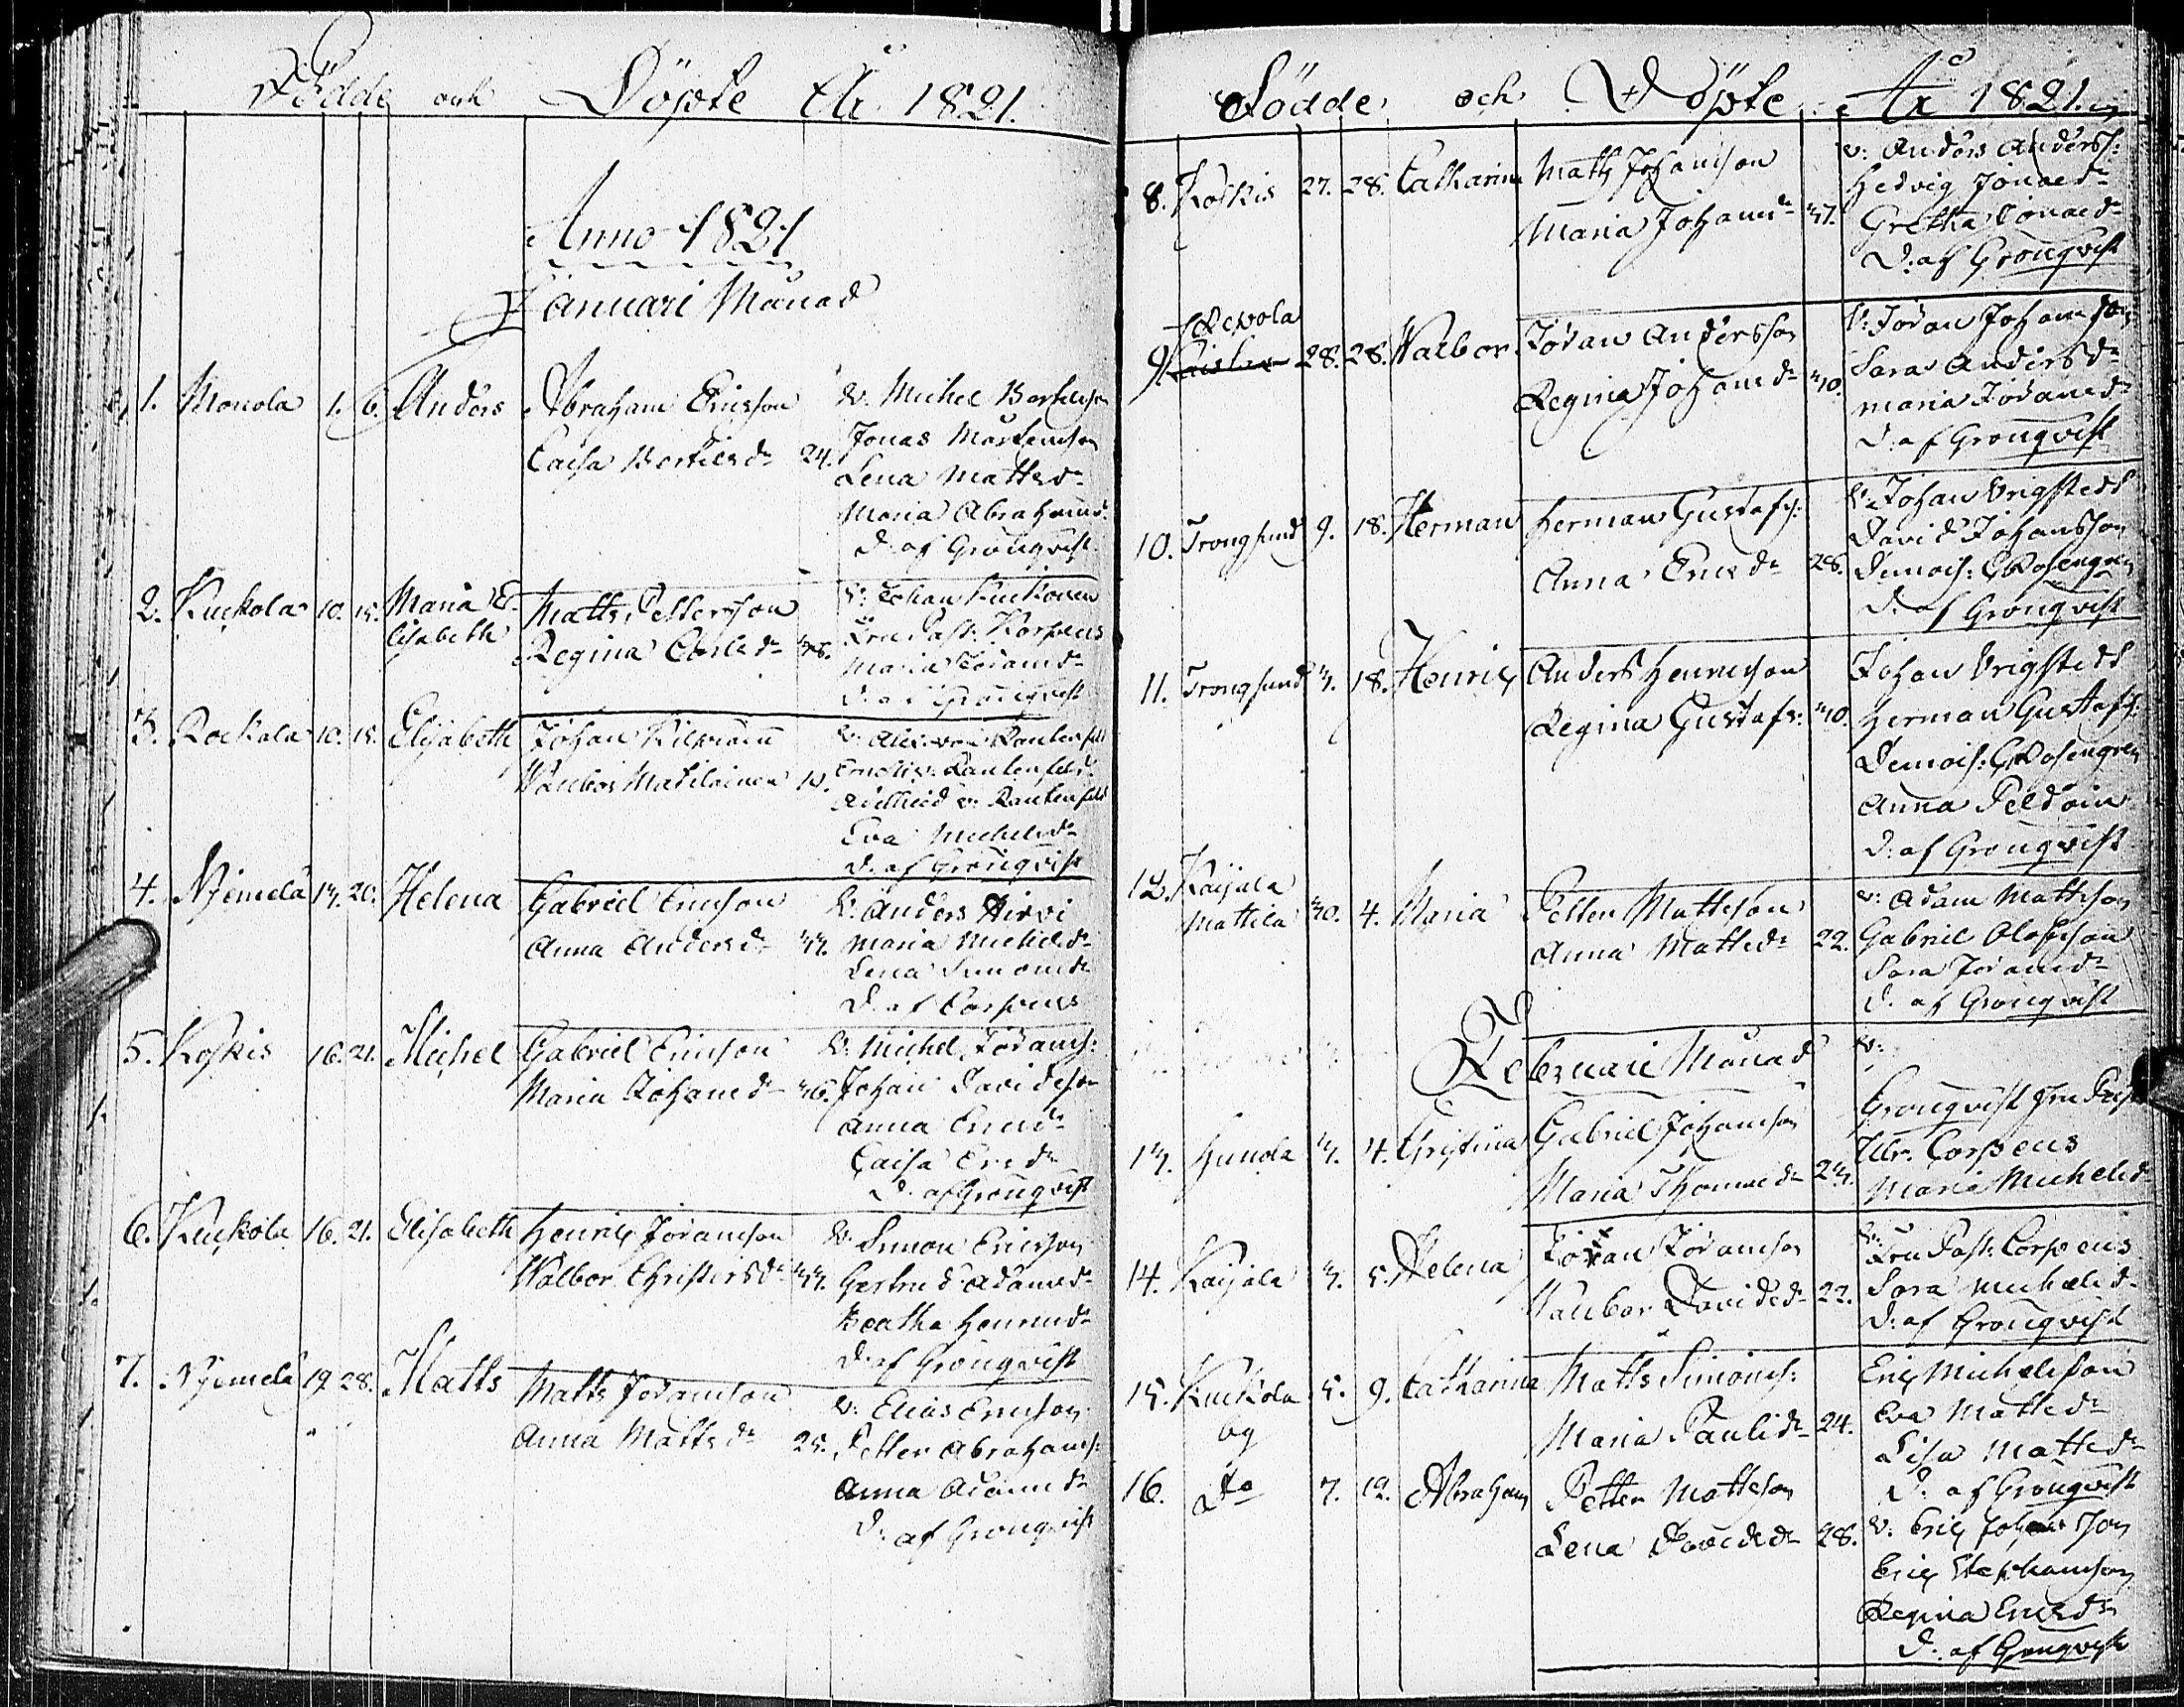 Födde och Döpte År 1821.
Anno 1821
Januari Månad
1. Monola 1. 6. Anders Abraham Ericsson
Caisa Bertilsdr 24.
V. Michel Bertilsson
Jonas Mårtensson
Lena Mattsdr
Maria Abrahamsd:
D: af Gronqvist
2. Kuckola 10. 15. Maria E-
lisabeth
Matts Pettersson
Regina Carlsdr 38.
V: Johan Kuckonen
Fru Past: Korpens
Maria Jöransdr
D: af Gronqvist
3. Rockala 10. 15. Elisabeth Johan Kilpiäin
Walbor Matilainen
V: Alex. von Rautenfeld
v: Rautenfeld:
Adelheid v: Rautenfeld
Eva Michelsdr
D: af Gronqvist
4. Njemelä 13. 20. Helena Gabriel Ericsson
Anna Andersdr 33.
V: Anders Hirvi
Maria Michelsdr
Lena Simonsdr
D: af Corpens
5. Koskis 16. 21. Michel Gabriel Ericsson
Maria Johansdr 36.
V: Michel Jöranss:
Johan Davidsson
Anna Ericsdr
Caisa Ericsdr
D: af Gronqvist
6. Kuckola 16. 21. Elisabeth Henric Jöransson
Walbor Christersdr 33.
V. Simon Ericsson
Gertrud Adamsdr
Beatha Henricsdr
D: af Gronqvist
7. Njemelä 19 28. Matts Matts Jöransson
Anna Mattsdr 25.
V: Elias Ericsson
Petter Abrahams:
Anna Adamsdr
D: af Gronqvist
Födde och Döpte År 1821.
8. Koskis 27. 28. Catharina Matts Johansson
Maria Johansdr 37.
V: Anders Anderss:
Hedvig Jonaedr
Gretha Jonaedr
D: af Gronqvist
Repola
9. 28. 28. Walbor Jöran Andersson
Regina Johansdr 30.
V: Jöran Johansson
Sara Andersdr
Maria Jöransdr
D: af Gronqvist
10. Trongsund 9. 18. Herman Herman Gustafs:
Anna Ericsdr 28.
V: Johan Vrigstedt
David Johansson
Demois: C Rosengren
D: af Gronqvist
11. Trongsund 3. 18. Henric Anders Henricsson
Regina Gustafs: 30.
Johan Vrigstedt
Herman Gustafs:
Demois: C Rosengren
Anna Peldoin
D: af Gronqvist
12. Kaijala
Mattila 30. 4. Maria Petter Mattsson
Anna Mattsdr 22.
V: Adam Mattsson
Gabriel Olofsson
Sara Jöransdr
D: af Gronqvist
Februari Månad
13. Hunola 3. 4. Christina Gabriel Johansson
Maria Thomaedr 23.
V:
Gronqvist Fru Past
Ulr. Corpens
Maria Michelsdr
14. Kaijala 3. 5. Helena Jöran Jöransson
Walbor Davidsdr 22.
V: Fru Past: Corpens
Sara Michelsdr
D: af Gronqvist
15. Kuckola
by 5. 9. Catharina Matts Simons:
Maria Paulidr 24.
Eric Michelsson
Eva Mattsdr
Lisa Mattsdr
D: af Gronqvist
16. Do 7. 12. Abraham Petter Mattsson
Lena Davidsdr 28.
V: Eric Johansson
Eric Stephansson
Regina Ericsdr
D: af Gronqvist